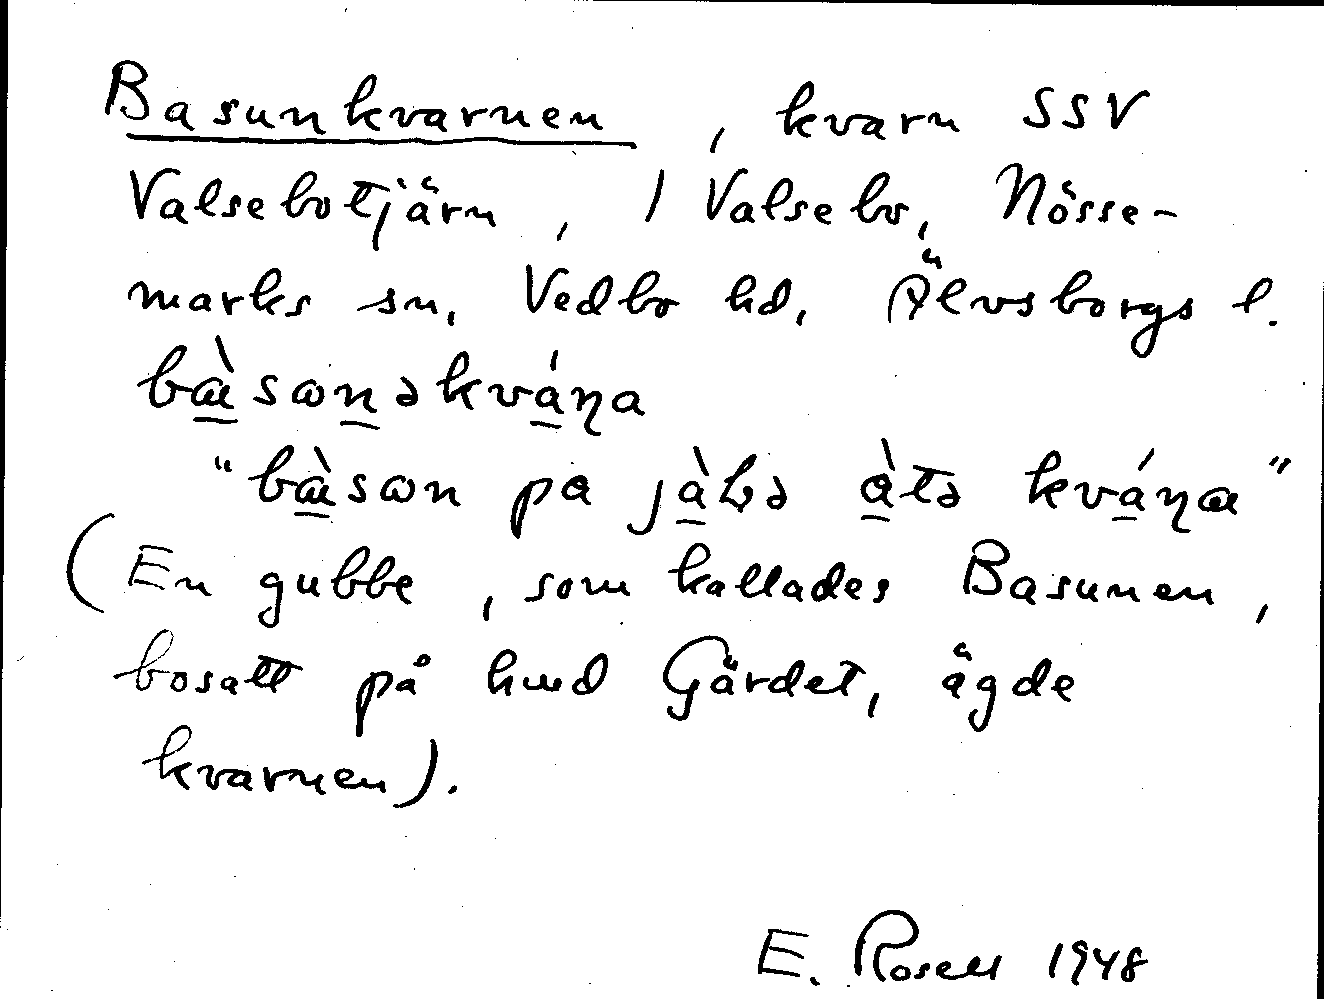 Basunkvarnen, kvarn SSV
Valsebotjärn, 1 Valsebo, Nösse-
marks sn, Vedbo hd, Älvsborgs l.
bæ̀sωnəkváꞃa
"bæ̀sωn pa jàƄə àtə kváꞃæ"
(En gubbe, som kallades Basunen,
bosatt på hmd Gärdet, ägde
kvarnen).
E. Rosell 1948